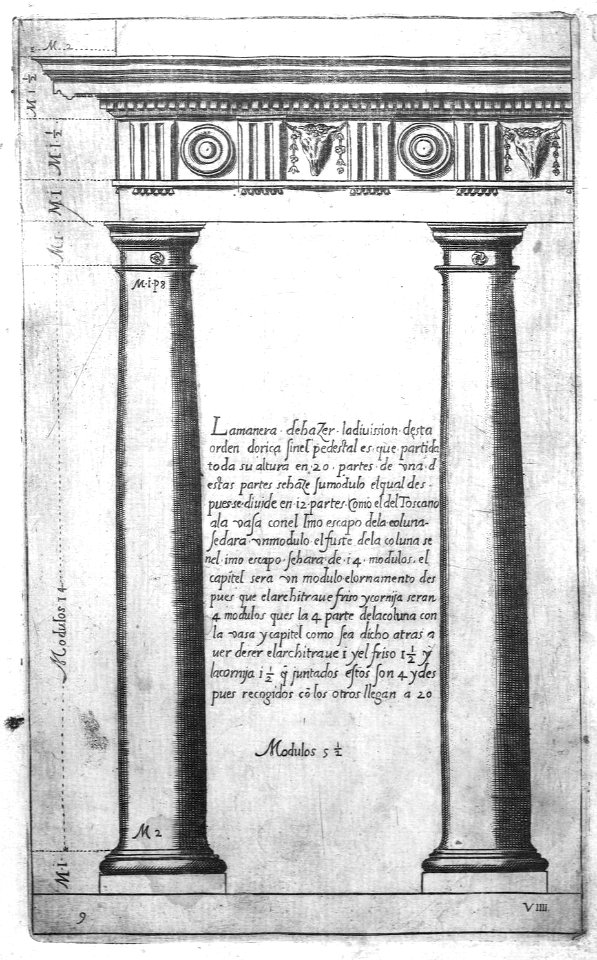 M 2
M 1 ½
M 1 ½
M 1
M 1
M·i·p8
Lamanera · dehaZer · ladiuission · dęsta
orden doriça ſinel pedestal es · que partida
toda su altura en · 20 · partes · de vna · d
estas partes sehaZe ſumodulo elqual des ·
pues·se·diuide en · 12 · partes · Como el del Toscano
ala vasa conel Imo escapo dela coluna ·
ſedara · vnmodulo el fuste dela coluna se
nel imo escapo · ſehara de · 14 · modulos · el
capitel sera vn modulo elornamento des
pues que elarchitraue friso ycornija seran
4 modulos ques la 4 parte delacoluna con
la vasa y capitel como ſea dicho atras a
uer deser elarchitraue i yel friso 1½ y
lacornija 1½ q̃ juntados estos son 4 ydes
pues recogidos cõ los otros llegan a 20
Modulos 5 ½
Modulos 14
M 2
M 1
9
VIIII